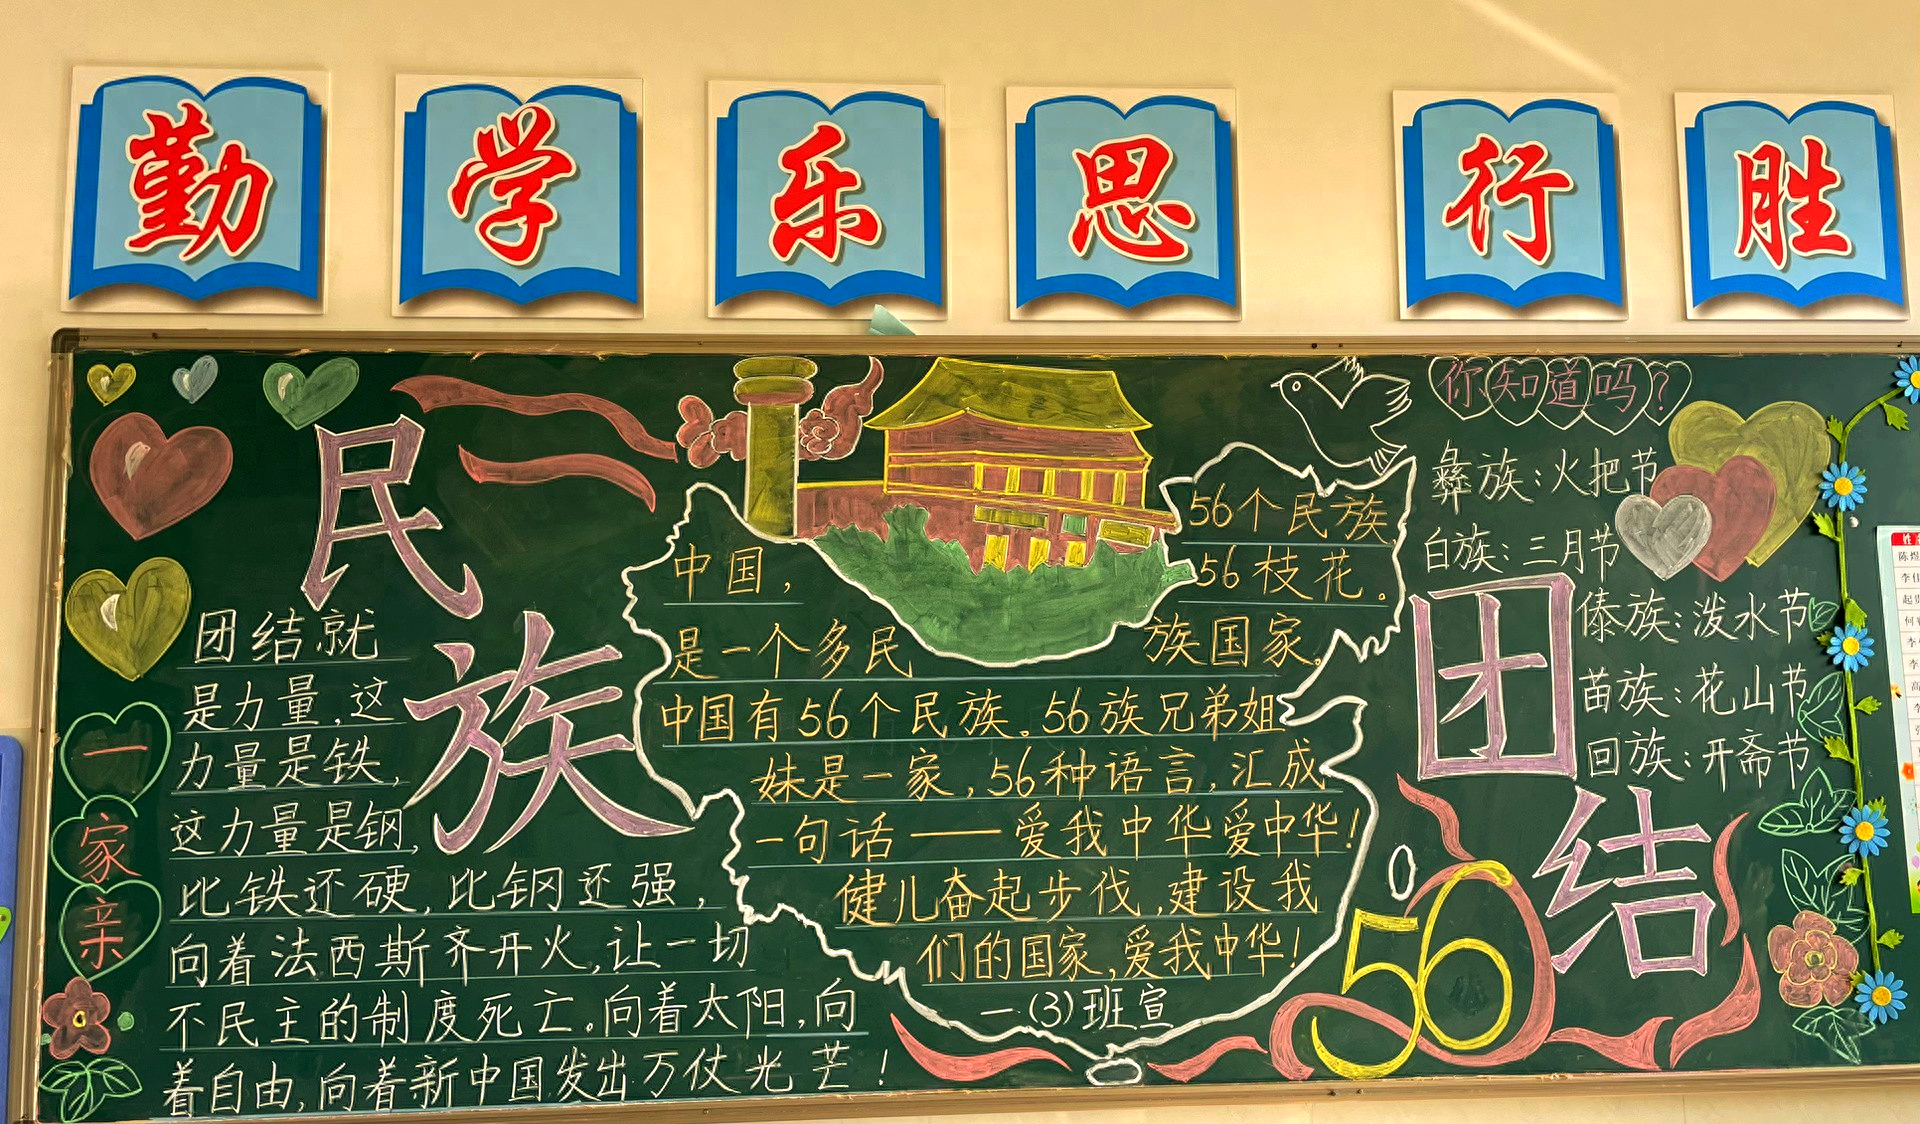 勤学乐思 行胜
民族
团结
团结就
是力量,这
力量是铁,
这力量是钢,
比铁还硬,比钢还强,
向着法西斯齐开火,让一切
不民主的制度死亡。向着太阳,向
着自由,向着新中国发出万仗光芒!
一家亲
中国,
56个民族
56枝花。
是一个多民 族国家。
中国有56个民族。56族兄弟姐
妹是一家,56种语言,汇成
一句话——爱我中华爱中华!
健儿奋起步伐,建设我
们的国家,爱我中华!
一(3)班宣
你知道吗?
彝族:火把节
白族:三月节
傣族:泼水节
苗族:花山节
回族:开斋节
56